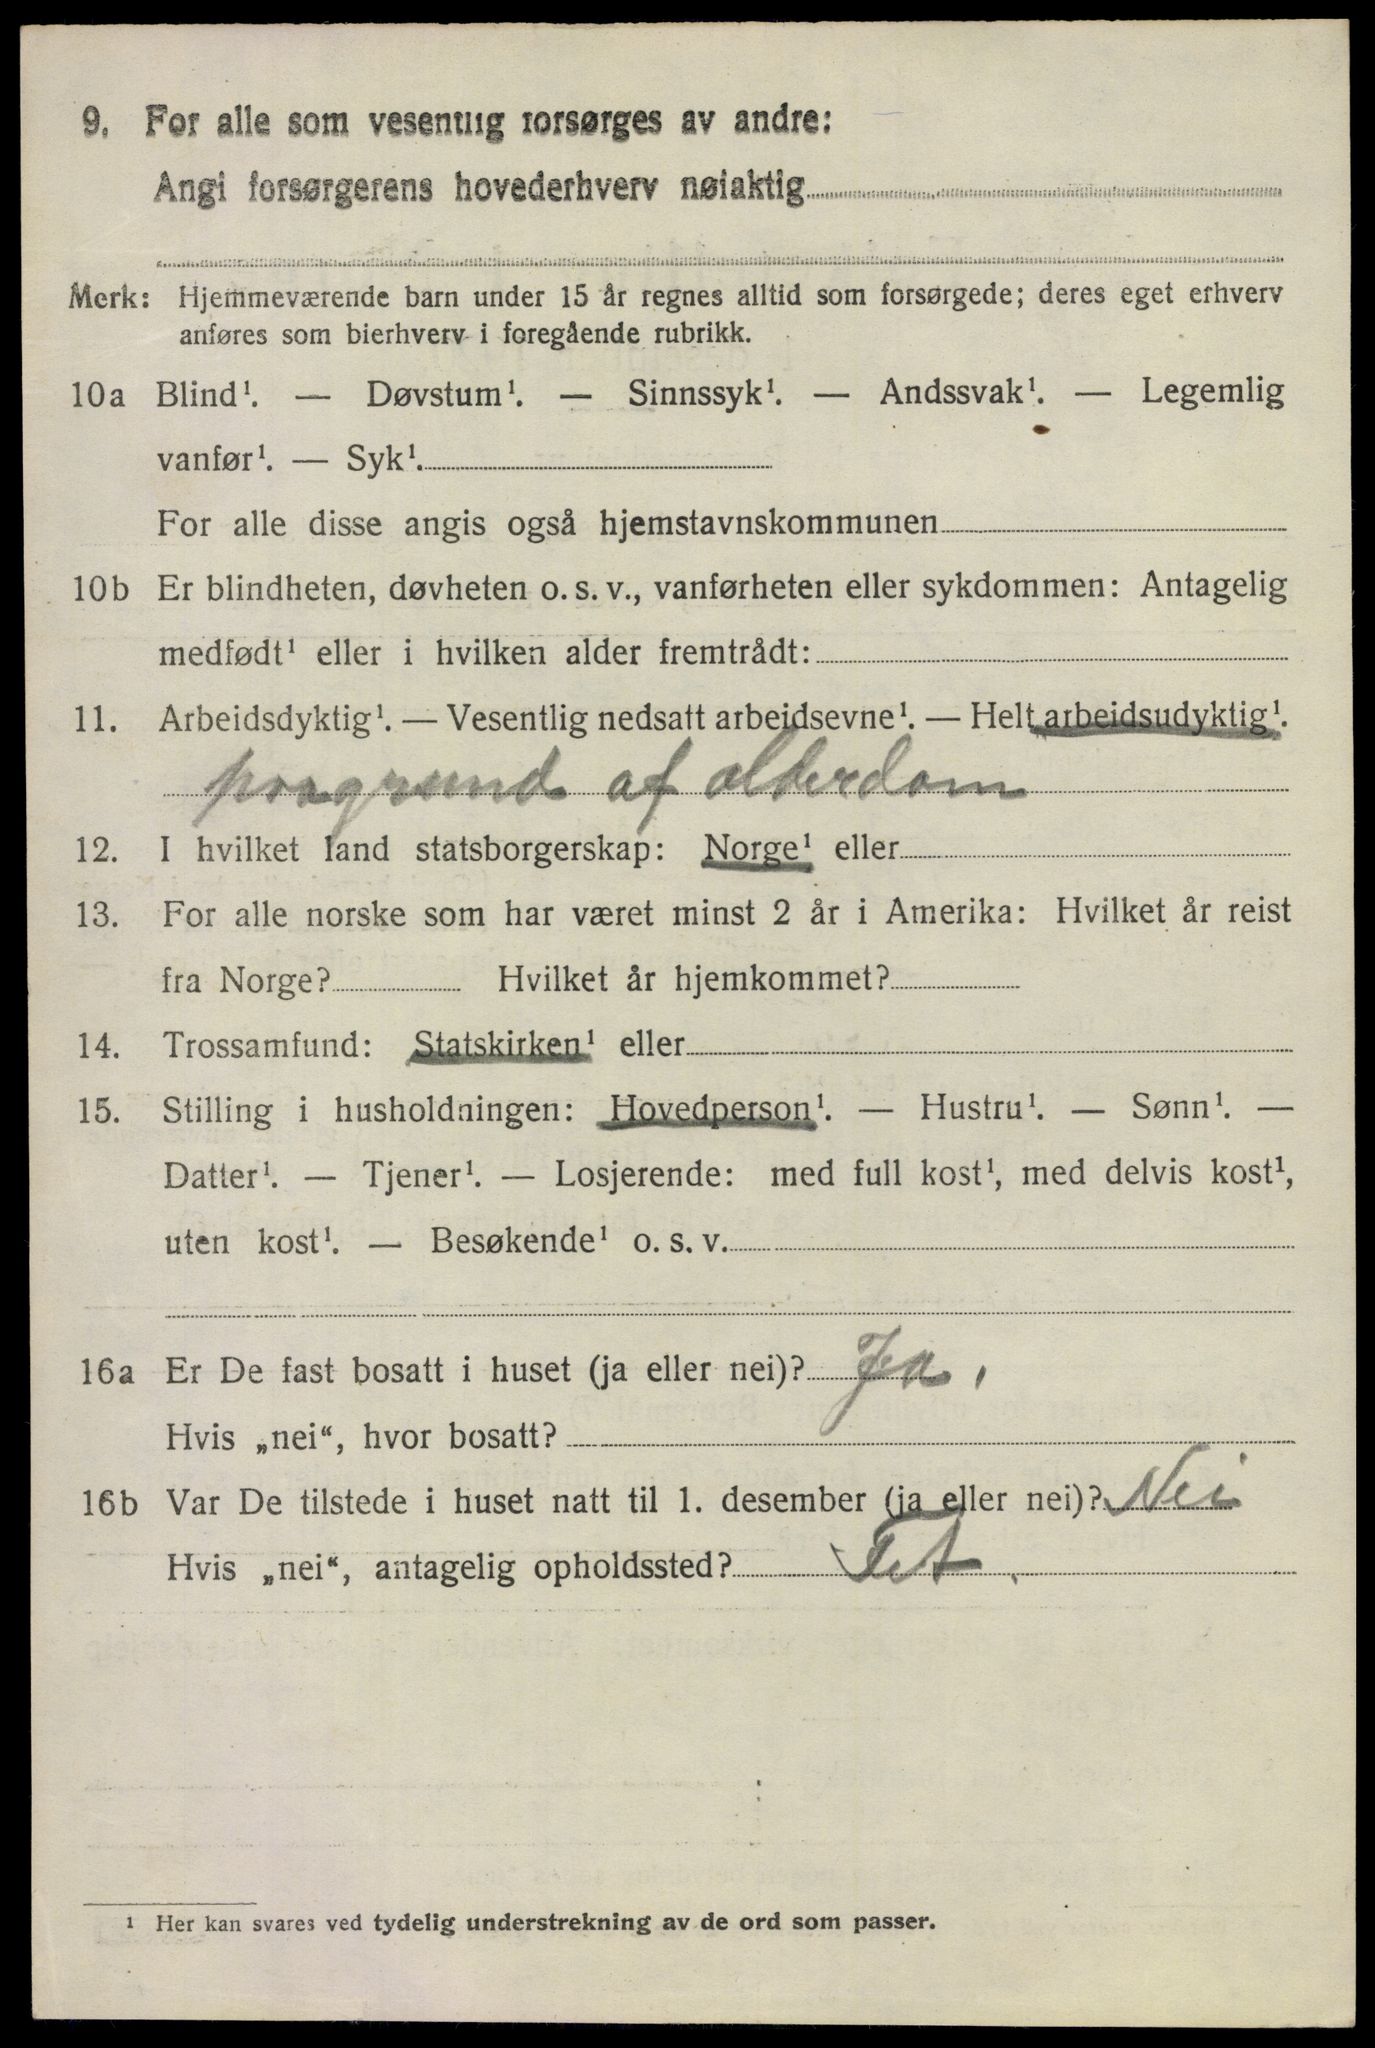 9. For alle som vesentlig forsørges av andre:
Angi forsørgerens hovederhverv nøiaktig
Merk: Hjemmeværende barn under 15 år regnes alltid som forsørgede; deres eget erhverv
anføres som bierhverv i foregående rubrikk.
10a Blind¹. — Døvstum¹. — Sinnssyk¹. — Andssvak¹. — Legemlig
vanfør¹. — Syk¹.
For alle disse angis også hjemstavnskommunen
10b Er blindheten, døvheten o. s. v., vanførheten eller sykdommen: Antagelig
medfødt¹ eller i hvilken alder fremtrådt:
11. Arbeidsdyktig¹. — Vesentlig nedsatt arbeidsevne¹. — Helt arbeidsudyktig¹.
paagrund af alderdom
12. I hvilket land statsborgerskap: Norge¹ eller
13. For alle norske som har været minst 2 år i Amerika: Hvilket år reist
fra Norge? Hvilket år hjemkommet?
14. Trossamfund: Statskirken¹ eller
15. Stilling i husholdningen: Hovedperson¹. — Hustru¹. — Sønn¹. —
Datter¹. — Tjener¹. — Losjerende: med full kost¹, med delvis kost¹,
uten kost¹. — Besøkende¹ o. s. v.
16a Er De fast bosatt i huset (ja eller nei)? Ja.
Hvis „nei“, hvor bosatt?
16b Var De tilstede i huset natt til 1. desember (ja eller nei)? Nei
Hvis „nei“, antagelig opholdssted?
¹ Her kan svares ved tydelig understrekning av de ord som passer.